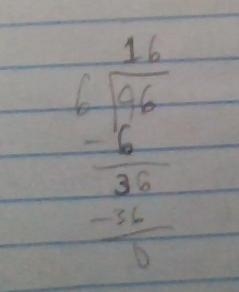 16
6 96
-6
36
-36
0